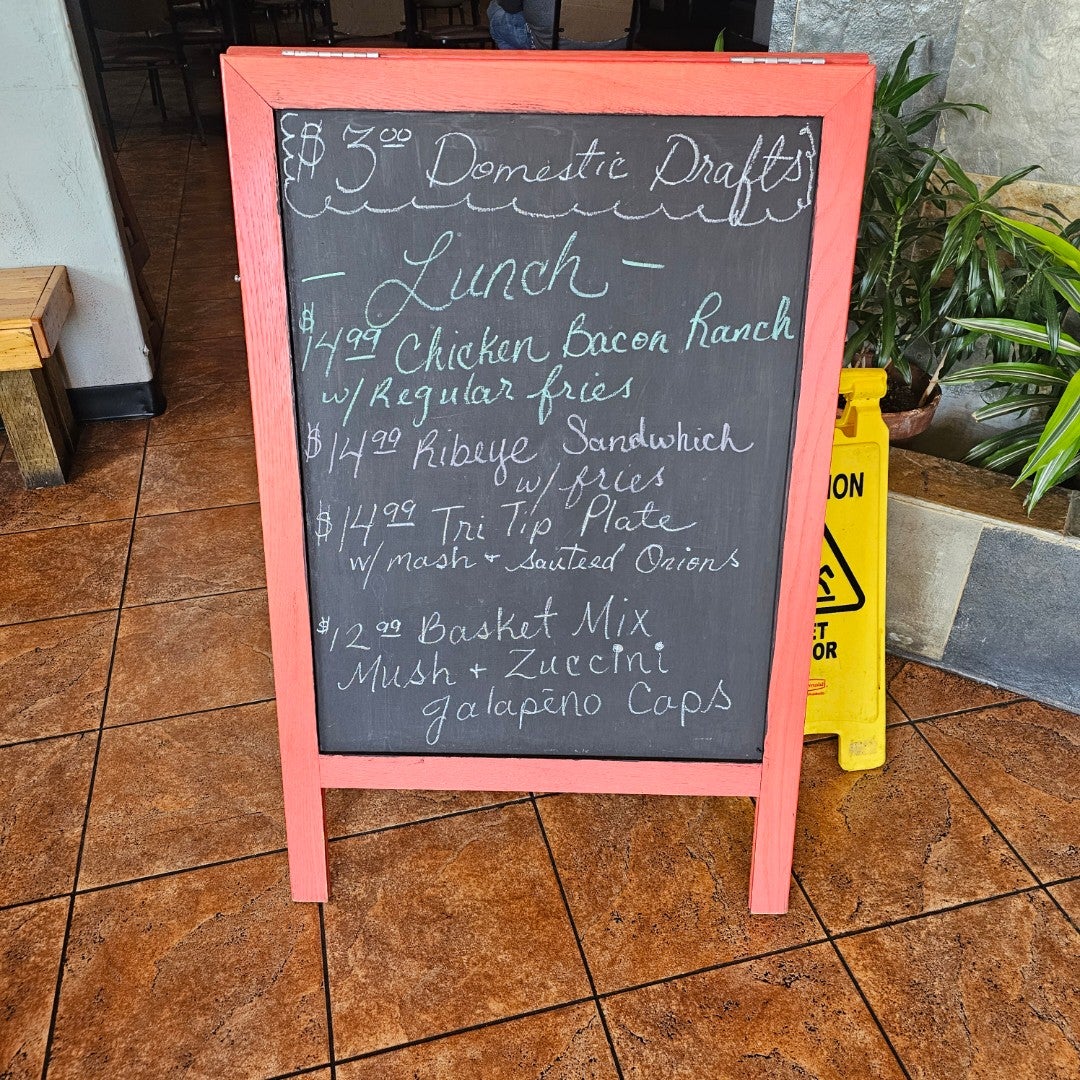 $3.00 Domestic Drafts
- Lunch -
$14.99 Chicken Bacon Ranch
w/ Regular fries
$14.99 Ribeye Sandwhich
w/ fries
$14.99 Tri Tip Plate
w/ mash + sauteed Onions
$12.99 Basket Mix
Mush + Zuccini
Jalapēno Caps
ION
ET
OOR